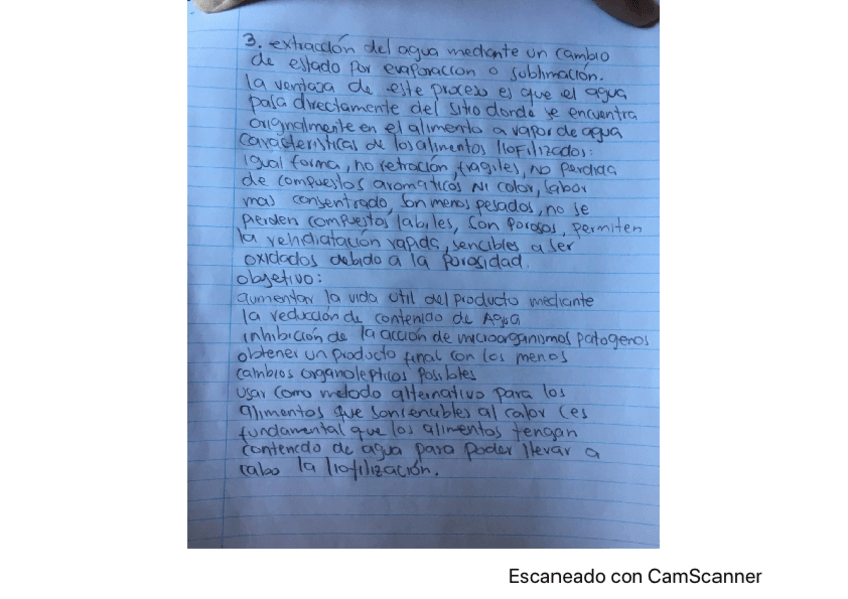 3. extracción del agua mediante un cambio
de estado por evaporacion o sublimación.
la ventaja de este proceso es que el agua
pasa directamente del sitio donde se encuentra
originalmente en el alimento a vapor de agua
Caracteristicas de los alimentos liofilizados:
igual forma, no retracción, fragiles, no perdida
de compuestos aromaticos Ni color, sabor
mas consentrado, son menos pesados, no se
pierden compuestos labiles, son porosos, permiten
la rehidratación rapida, sencibles a ser
oxidados debido a la porosidad.
objetivo:
aumentar la vida util del producto mediante
la reducción de contenido de Agua
inhibición de la acción de microorganismos patogenos
obtener un producto final con los menos
cambios organolepticos posibles
usar como metodo alternativo para los
alimentos que son senables al calor (es
fundamental que los alimentos tengan
contenido de agua para poder llevar a
cabo la liofilización.
Escaneado con CamScanner